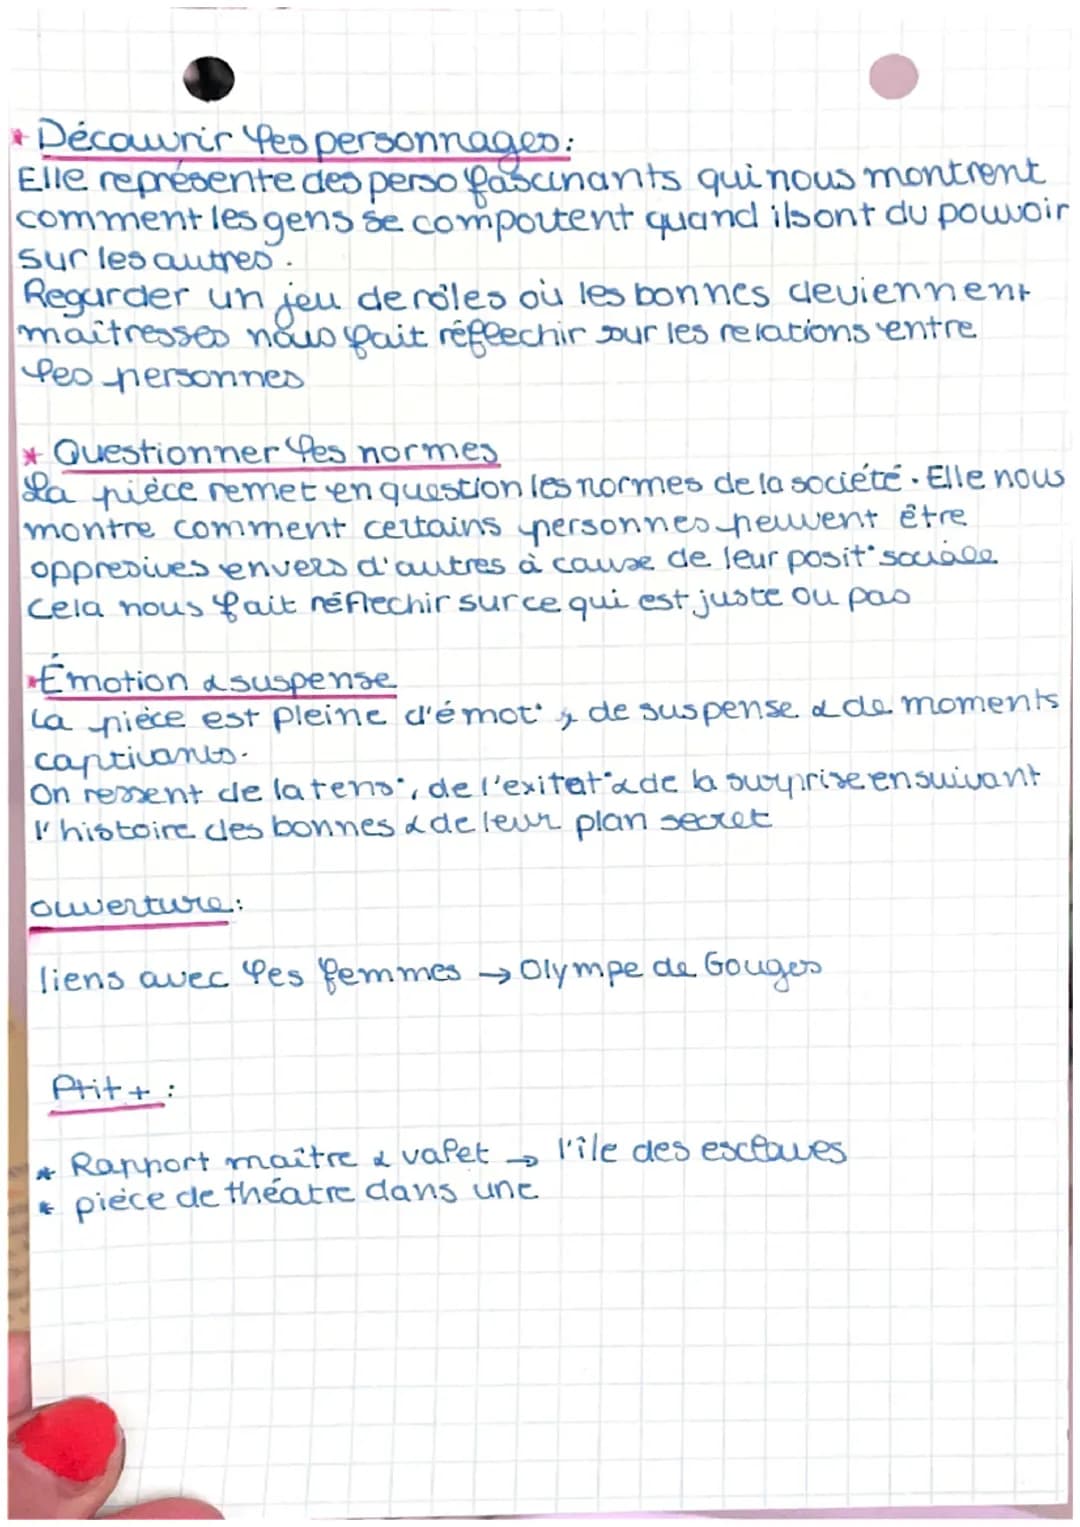 * Découvrir les personnages:
Elle représente des perso fascinants qui nous montrent
comment les gens se comportent quand ils ont du pouvoir
sur les autres.
Regarder un jeu de rôles où les bonnes deviennent
maîtresses nous fait réfléechir sur les relations entre
les personnes
* Questionner les normes
La pièce remet en question les normes de la société. Elle nous
montre comment certains personnes peuvent être
oppresives envers d'autres à cause de leur posit° sociale
Cela nous fait réflechir sur ce qui est juste ou pas
* Émotion & suspense
La pièce est pleine d'émot°, de suspense & de moments
captivants.
On ressent de la tens°, de l'exitat° & de la surprise en suivant
l'histoire des bonnes & de leur plan secret
ouverture:
liens avec les femmes → Olympe de Gouges
Ptit + :
* Rapport maître & valet → l'île des esclaves
* pièce de théatre dans une